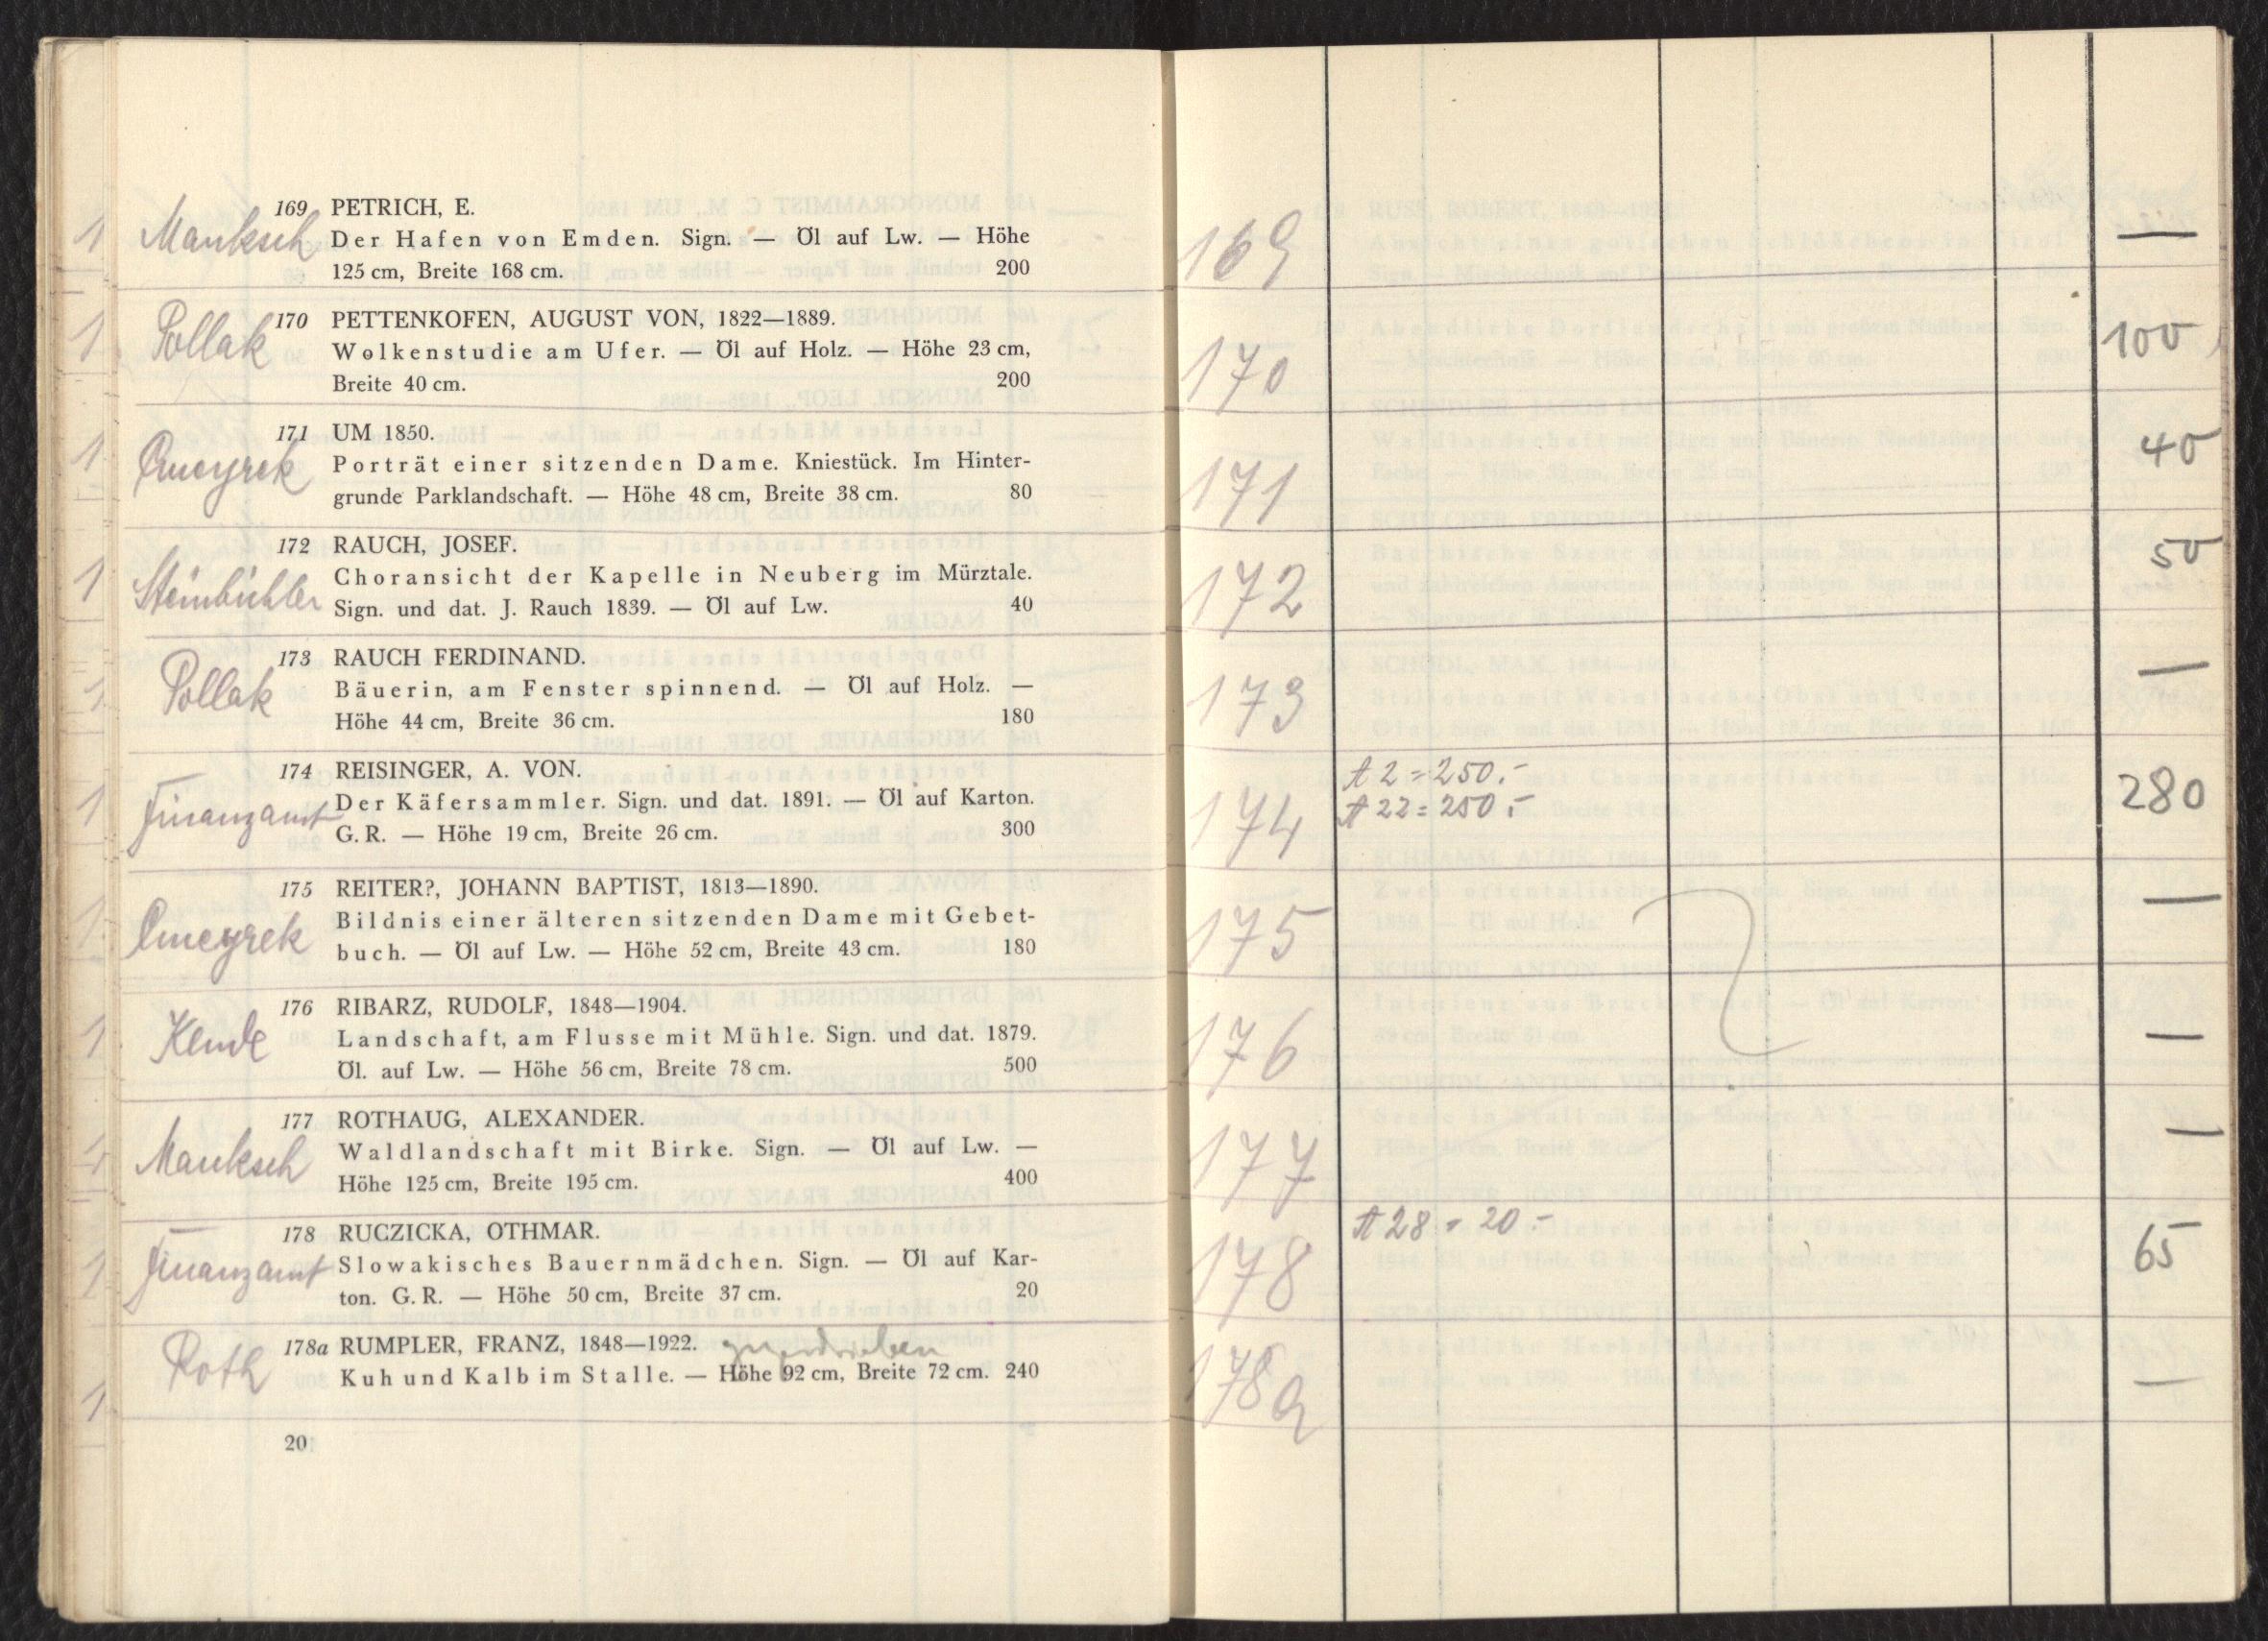 1 Manksch 169 PETRICH, E.
Der Hafen von Emden. Sign. — Öl auf Lw. — Höhe
125 cm, Breite 168 cm. 200
1 Pollak 170 PETTENKOFEN, AUGUST VON, 1822—1889.
Wolkenstudie am Ufer. — Öl auf Holz. — Höhe 23 cm,
Breite 40 cm. 200
1 171 UM 1850.
Porträt einer sitzenden Dame. Kniestück. Im Hinter-
grunde Parklandschaft. — Höhe 48 cm, Breite 38 cm. 80
1 Steinbichler 172 RAUCH, JOSEF.
Choransicht der Kapelle in Neuberg im Mürztale.
Sign. und dat. J. Rauch 1839. — Öl auf Lw. 40
1 Pollak 173 RAUCH FERDINAND.
Bäuerin, am Fenster spinnend. — Öl auf Holz. —
Höhe 44 cm, Breite 36 cm. 180
1 Finanzamt 174 REISINGER, A. VON.
Der Käfersammler. Sign. und dat. 1891. — Öl auf Karton.
G. R. — Höhe 19 cm, Breite 26 cm. 300
1 175 REITER?, JOHANN BAPTIST, 1813—1890.
Bildnis einer älteren sitzenden Dame mit Gebet-
buch. — Öl auf Lw. — Höhe 52 cm, Breite 43 cm. 180
1 Kende 176 RIBARZ, RUDOLF, 1848—1904.
Landschaft, am Flusse mit Mühle. Sign. und dat. 1879.
Öl. auf Lw. — Höhe 56 cm, Breite 78 cm. 500
1 Manksch 177 ROTHAUG, ALEXANDER.
Waldlandschaft mit Birke. Sign. — Öl auf Lw. —
Höhe 125 cm, Breite 195 cm. 400
1 Finanzamt 178 RUCZICKA, OTHMAR.
Slowakisches Bauernmädchen. Sign. — Öl auf Kar-
ton. G. R. — Höhe 50 cm, Breite 37 cm. 20
1 Roth 178a RUMPLER, FRANZ, 1848—1922.
Kuh und Kalb im Stalle. — Höhe 92 cm, Breite 72 cm. 240
20
169 —
170 100
171 40
172 50
173 —
174 A 2 = 250.-
A 22 = 250.- 280
175 —
176 —
177 —
178 A 28 = 20.- 65
178a —